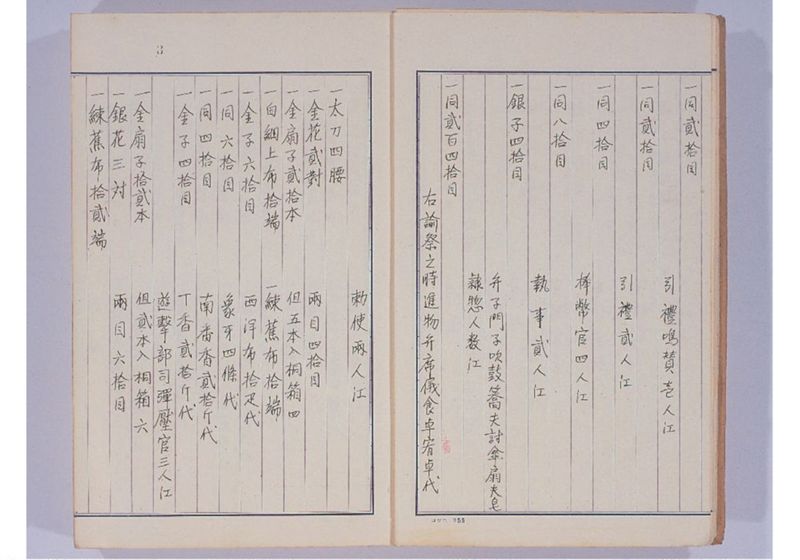 一同貳拾目
引禮鳴贊壱人江
一同貳拾目
引禮貳人江
一同四拾目
捧幣官四人江
一同八拾目
執事貳人江
一銀子四拾目
弁子門子吹鼓轎夫討傘扇夫皂
隷惣人数江
一同貳百四拾目
右諭祭之時進物弁席儀食卓宥卓代
一太刀四腰
勅使兩人江
一金花貳對
兩目四拾目
一金扇子貳拾本
但五本入桐箱四
一白細上布拾端
一練蕉布拾端
一金子六拾目
西洋布拾疋代
一同六拾目
象牙四條代
一同四拾目
南番香貳拾斤代
一金子四拾目
丁香貳拾斤代
遊擊部司彈壓官三人江
一金扇子拾貳本
但貳本入桐箱六
一銀花三対
兩目六拾目
一練蕉布拾貳端
3